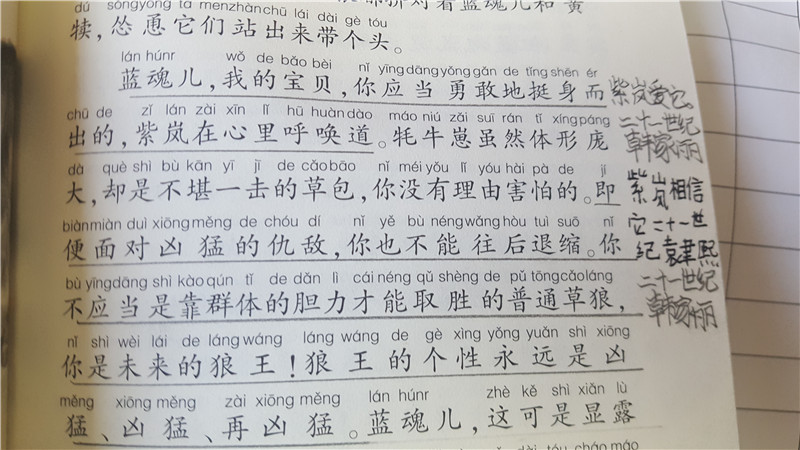 dú sǒngyǒng tā menzhànchū lái dài gè tóu
犊,怂恿它们站出来带个头。
lán húnr wǒ de bǎo bèi nǐ yīngdāngyǒnggǎn de tǐng shēn ér
蓝魂儿,我的宝贝,你应当勇敢地挺身而
chū de zǐ lán zài xīn lǐ hū huàndào máo niú zǎi suī rán tǐ xíng páng
出的,紫岚在心里呼唤道。牦牛崽虽然体形庞
dà què shì bù kān yī jī de cǎobāo nǐ méi yǒu lǐ yóu hài pà de jí
大,却是不堪一击的草包,你没有理由害怕的。即
biànmiàn duì xiōngměng de chóu dí nǐ yě bù néngwǎnghòu tuì suō nǐ
便面对凶猛的仇敌,你也不能往后退缩。你
bù yīngdāng shì kàoqún tǐ de dǎn lì cái néng qǔ shèng de pǔ tōngcǎoláng
不应当是靠群体的胆力才能取胜的普通草狼,
nǐ shì wèi lái de lángwáng láng wáng de gè xìng yǒng yuǎn shì xiōng
你是未来的狼王!狼王的个性永远是凶
měng xiōng měng zài xiōng měng lán húnr zhè kě shì xiǎn lù
猛、凶猛、再凶猛。蓝魂儿,这可是显露
紫岚爱它
二十一世纪
韩家丽
紫岚相信
它二十一世
纪袁聿熙
二十一世纪
韩家丽